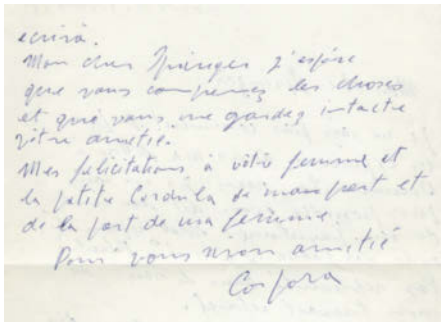 écrira.
Mon cher Spieniger j'espère
que vous comprenez les choses
et que vous me gardez intacte
vôtre amitié.
Mes felicitations a vôtre femme et
la petite Cordula de mon part et
de la part de ma femme.
Pour vous mon amitié
Corpora